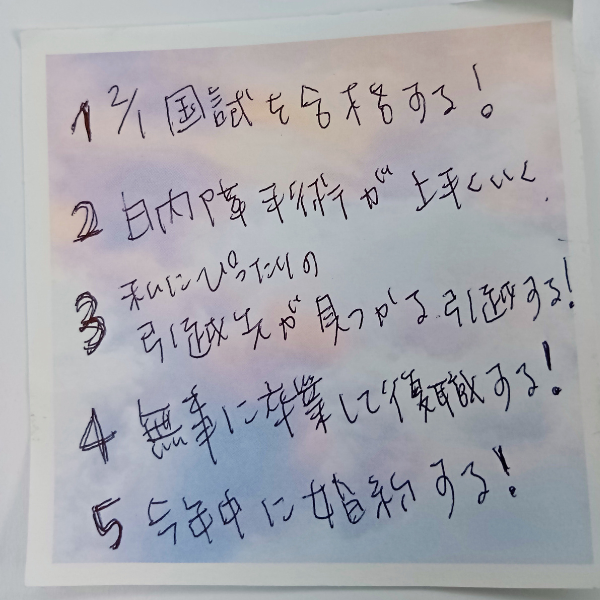 1 2/1 国試を合格する!
2 白内障手術が上手くいく.
私にぴったりの
3 引越先が見つかる.引越する!
4 無事に卒業して復職する!
5 今年中に婚約する!